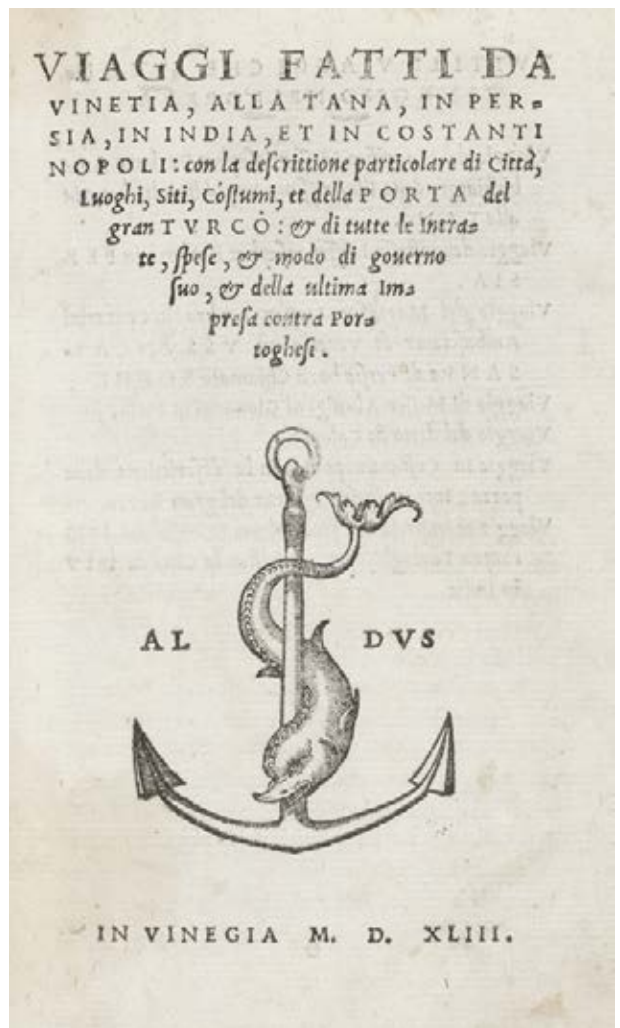 VIAGGI FATTI DA
VINETIA, ALLA TANA, IN PER-
SIA, IN INDIA, ET IN COSTANTI
NOPOLI: con la descrittione particolare di Città,
Luoghi, Siti, Costumi, et della PORTA del
gran TVRCO: & di tutte le Intra-
te, spese, & modo di gouerno
suo, & della ultima Im-
presa contra Por-
toghesi.
AL DVS
IN VINEGIA M. D. XLIII.